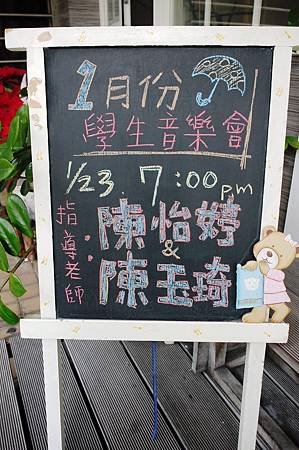 1月份
學生音樂會
1/23 7:00pm
指導老師:
陳怡婷
&
陳玉琦